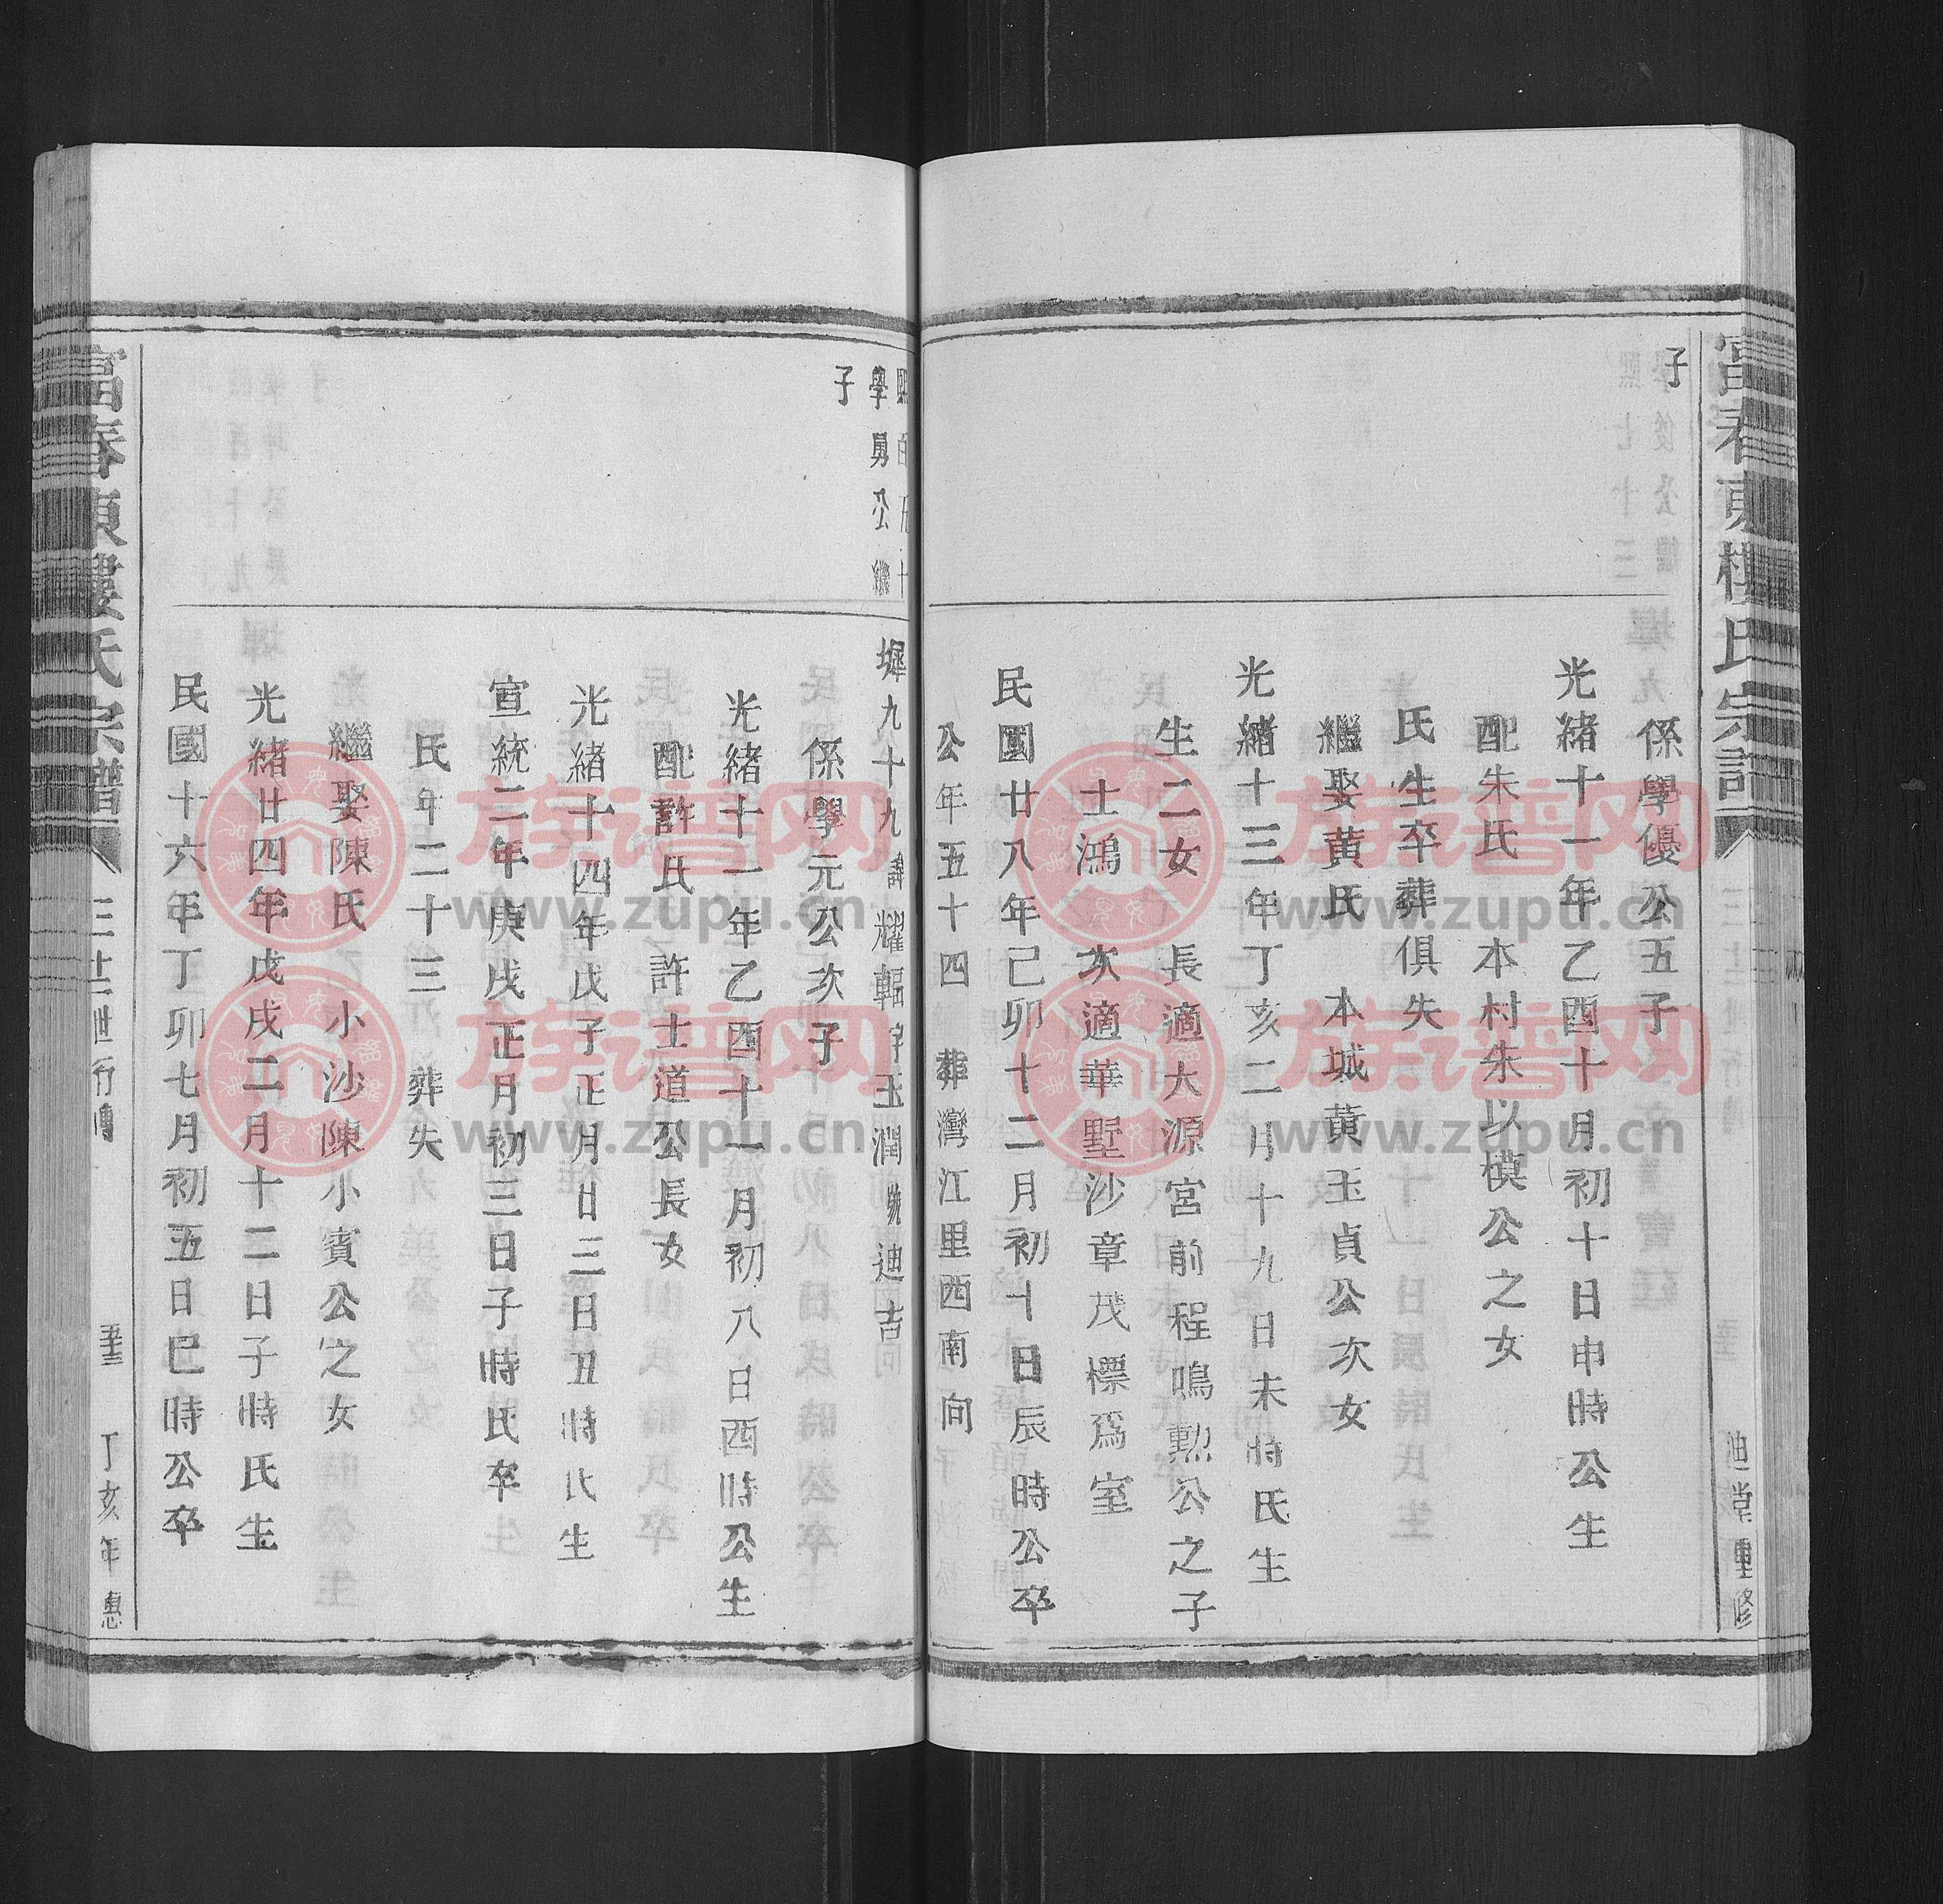 富春東樓氏宗譜
迪堂重修
子
係學優公五子
光緒十一年乙酉十月初十日申時公生
配朱氏 本村朱以模公之女
氏生卒葬俱失
繼娶黃氏 本城黃玉貞公次女
光緒十三年丁亥二月十九日未時氏生
生二女 長適大源宮前程鳴勲公之子
士鴻 次適華墅沙章茂標爲室
民國廿八年己卯十二月初十日辰時公卒
公年五十四 葬灣江里西南向
學勇公繼
子
墀九十九 諱耀輻字玉潤號迪吉
係學元公次子
光緒十一年乙酉十一月初八日酉時公生
配許氏 許士道公長女
光緒十四年戊子正月廿三日丑時氏生
宣統二年庚戌正月初三日子時氏卒
氏年二十三 葬失
繼娶陳氏 小沙陳小賓公之女
光緒廿四年戊戌二月十二日子時氏生
民國十六年丁卯七月初五日巳時公卒
富春東樓氏宗譜
世行傳
丁亥年惠
族谱网
www.zupu.cn
族谱网
www.zupu.cn
族谱网
www.zupu.cn
族谱网
www.zupu.cn